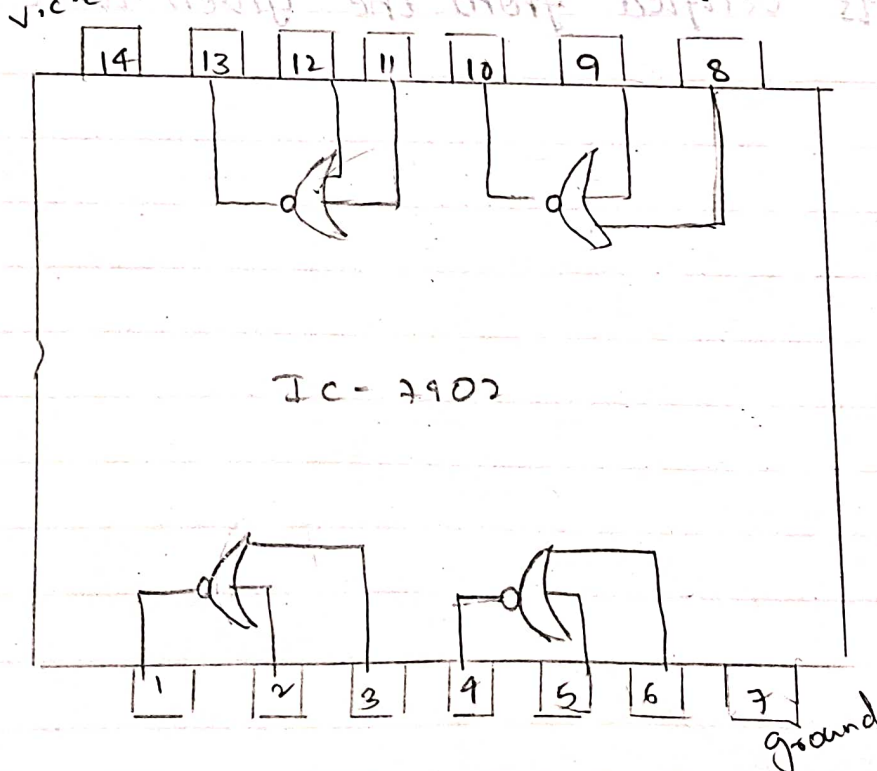 V.C.C
14 13 12 11 10 9 8
IC - 7402
1 2 3 4 5 6 7
ground